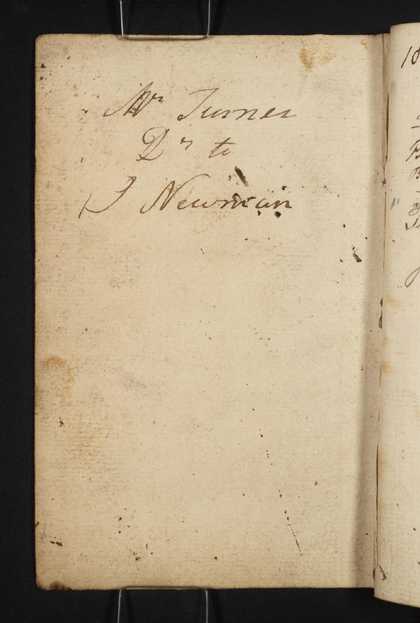 Mr Turner
Dr to
J Newman
18